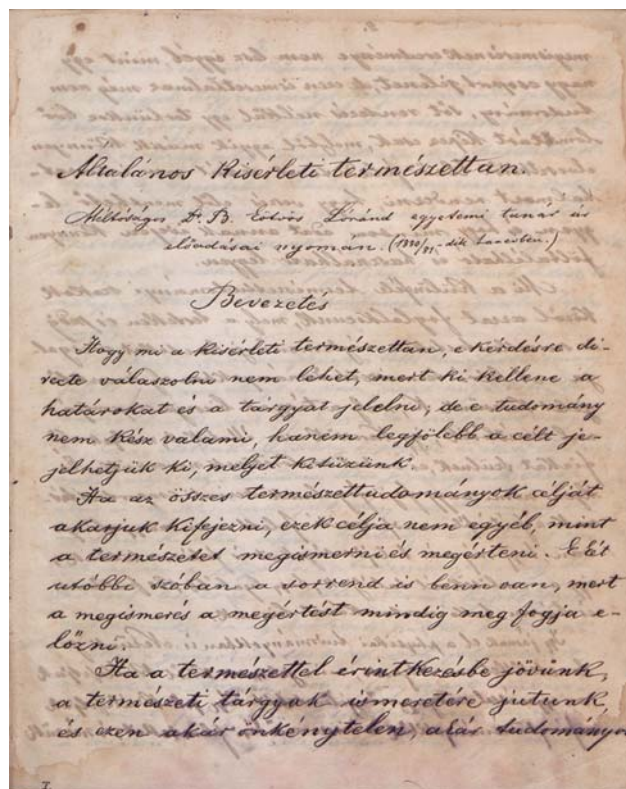 Általános kisérleti természettan.
Méltóságos Dr. B. Eötvös Lóránd egyetemi tanár úr
előadásai nyomán. (1880/81.-dik tanévben.)
Bevezetés
Hogy mi a kisérleti természettan, e kérdésre di-
recte válaszolni nem lehet, mert ki kellene a
határokat és a tárgyat jelelni; de e tudomány
nem kész valami, hanem legfölebb a célt je-
jelhetjük ki, melyet kitüzünk.
Ha az összes természettudományok célját
akarjuk kifejezni, ezek célja nem egyéb, mint
a természetet megismerni és megérteni. E két
utóbbi szóban a sorrend is benn van, mert
a megismerés a megértést mindig meg fogja e-
lőzni.
Ha a természettel érintkezésbe jövünk,
a természeti tárgyak ismeretére jutunk,
és ezen akár önkénytelen, akár tudományo